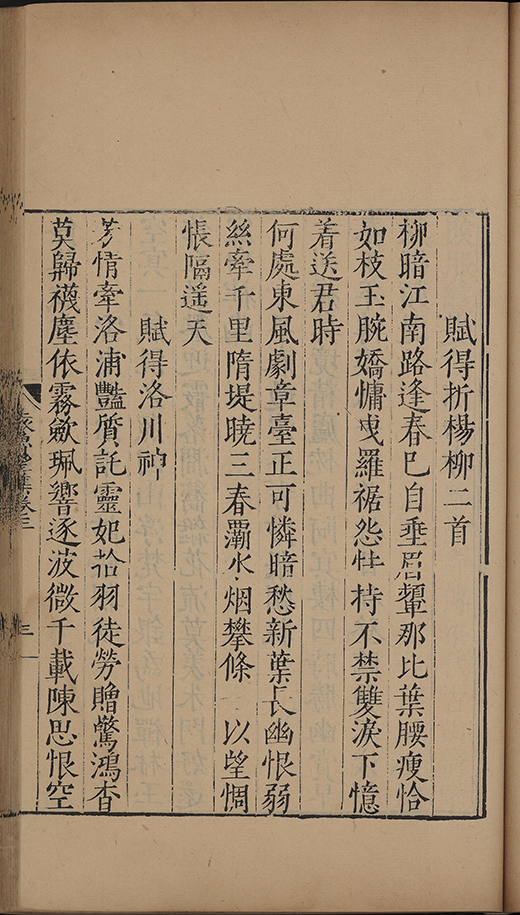 賦得折楊柳二首
柳暗江南路逢春已自垂眉顰那比葉腰瘦恰
如枝玉腕嬌慵曳羅裾怨性持不禁雙淚下憶
着送君時
何處東風劇章臺正可憐暗愁新葉長幽恨弱
絲牽千里隋堤曉三春灞水烟攀條 以望惆
悵隔遥天
賦得洛川神
多情牽洛浦豔質託靈妃拾羽徒勞贈驚鴻杳
莫歸襪塵依霧歛珮響逐波微千載陳思恨空
卷三
三